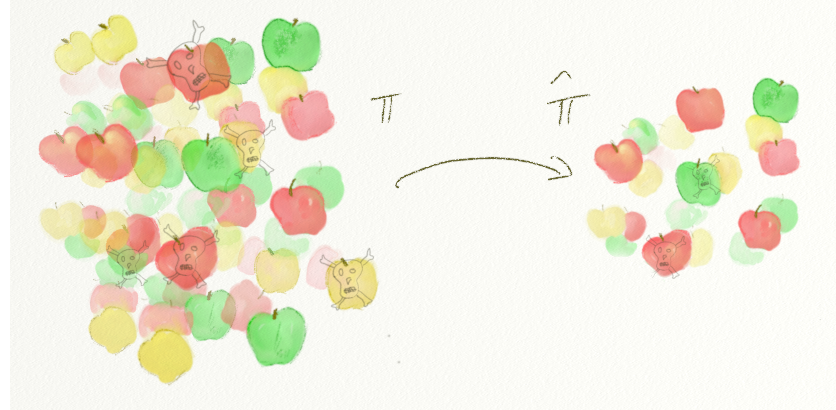 π π̂